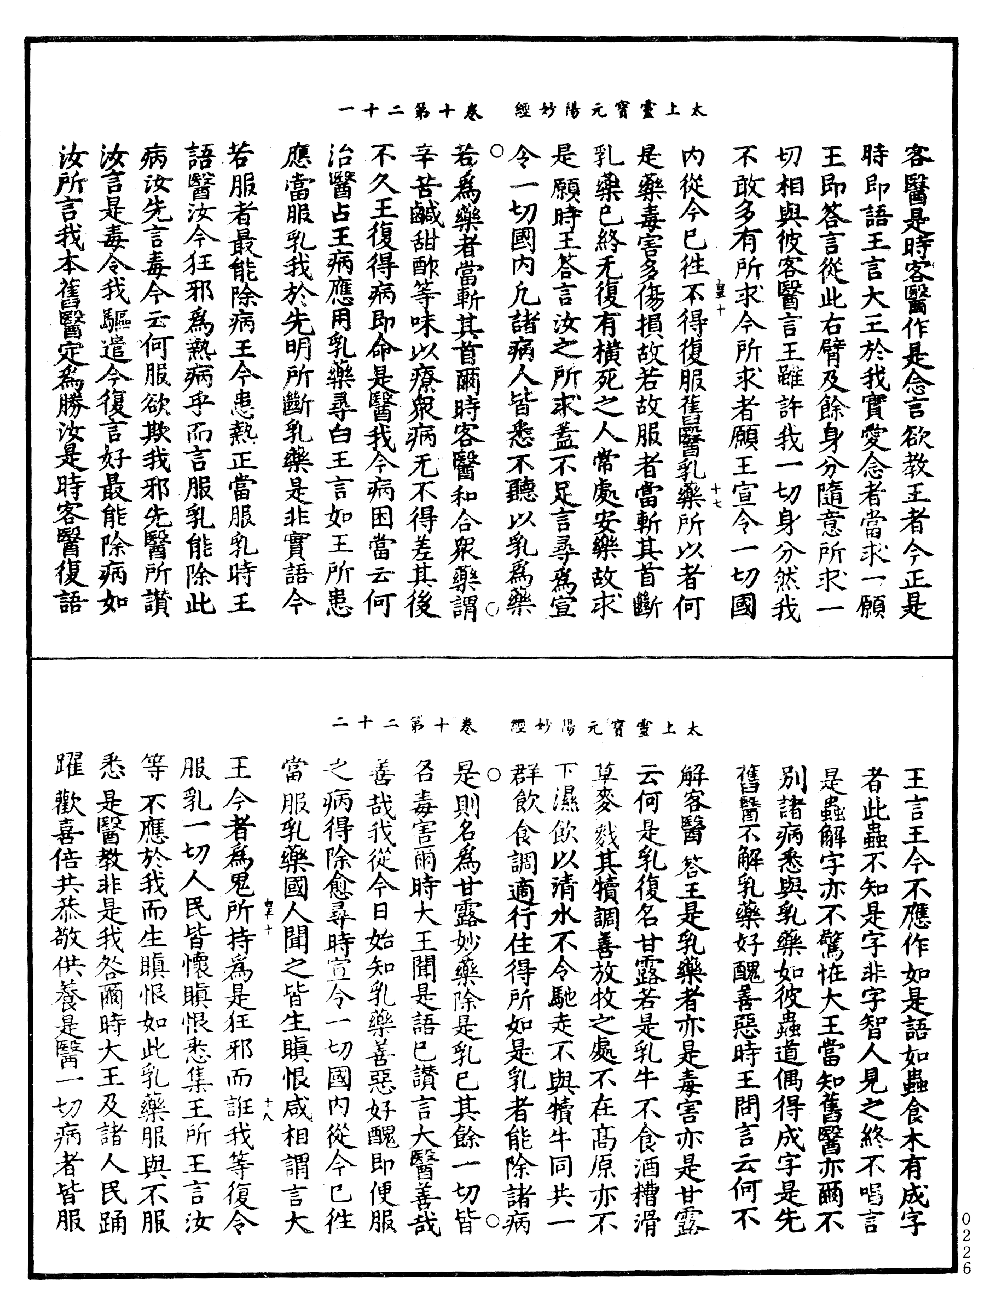 太上靈寶元陽妙經　卷十第二十一
客醫是時客醫作是念言欲教王者今正是
時即語王言大王於我實愛念者當求一願
王即答言從此右臂及餘身分隨意所求一
切相與彼客醫言王雖許我一切身分然我
不敢多有所求今所求者願王宣令一切國
皇十
十七
内從今已徃不得復服舊醫乳藥所以者何
是藥毒害多傷損故若故服者當斬其首斷
乳藥已終无復有橫死之人常處安藥故求
是願時王答言汝之所求盖不足言尋爲宣
令一切國内凢諸病人皆悉不聽以乳爲藥
若爲藥者當斬其首爾時客醫和合衆藥謂
辛苦鹹甜酢等味以療衆病无不得差其後
不久王復得病即命是醫我今病困當云何
治醫占王病應用乳藥尋白王言如王所患
應當服乳我於先明所斷乳藥是非實語今
若服者最能除病王今患熱正當服乳時王
語醫汝今狂邪爲熱病乎而言服乳能除此
病汝先言毒今云何服欲欺我邪先醫所讃
汝言是毒令我驅遣今復言好最能除病如
汝所言我本舊醫定爲勝汝是時客醫復語
太上靈寶元陽妙經　卷十第二十二
王言王今不應作如是語如蟲食木有成字
者此蟲不知是字非字智人見之終不唱言
是蟲解字亦不驚恠大王當知舊醫亦爾不
別諸病悉與乳藥如彼蟲道偶得成字是先
舊醫不解乳藥好醜善惡時王問言云何不
解客醫答王是乳藥者亦是毒害亦是甘露
云何是乳復名甘露若是乳牛不食酒糟滑
草麥䴬其犢調善放牧之處不在髙原亦不
下濕飲以清水不令馳走不與犢牛同共一
群飲食調適行住得所如是乳者能除諸病
是則名爲甘露妙藥除是乳已其餘一切皆
名毒害爾時大王聞是語已讃言大醫善哉
善哉我從今日始知乳藥善惡好醜即便服
之病得除愈尋時宣令一切國内從今已徃
當服乳藥國人聞之皆生瞋恨咸相謂言大
皇十
十八
王今者爲鬼所持爲是狂邪而誑我等復令
服乳一切人民皆懷瞋恨悉集王所王言汝
等不應於我而生瞋恨如此乳藥服與不服
悉是醫教非是我咎爾時大王及諸人民踊
躍歡喜倍共恭敬供養是醫一切病者皆服
0226